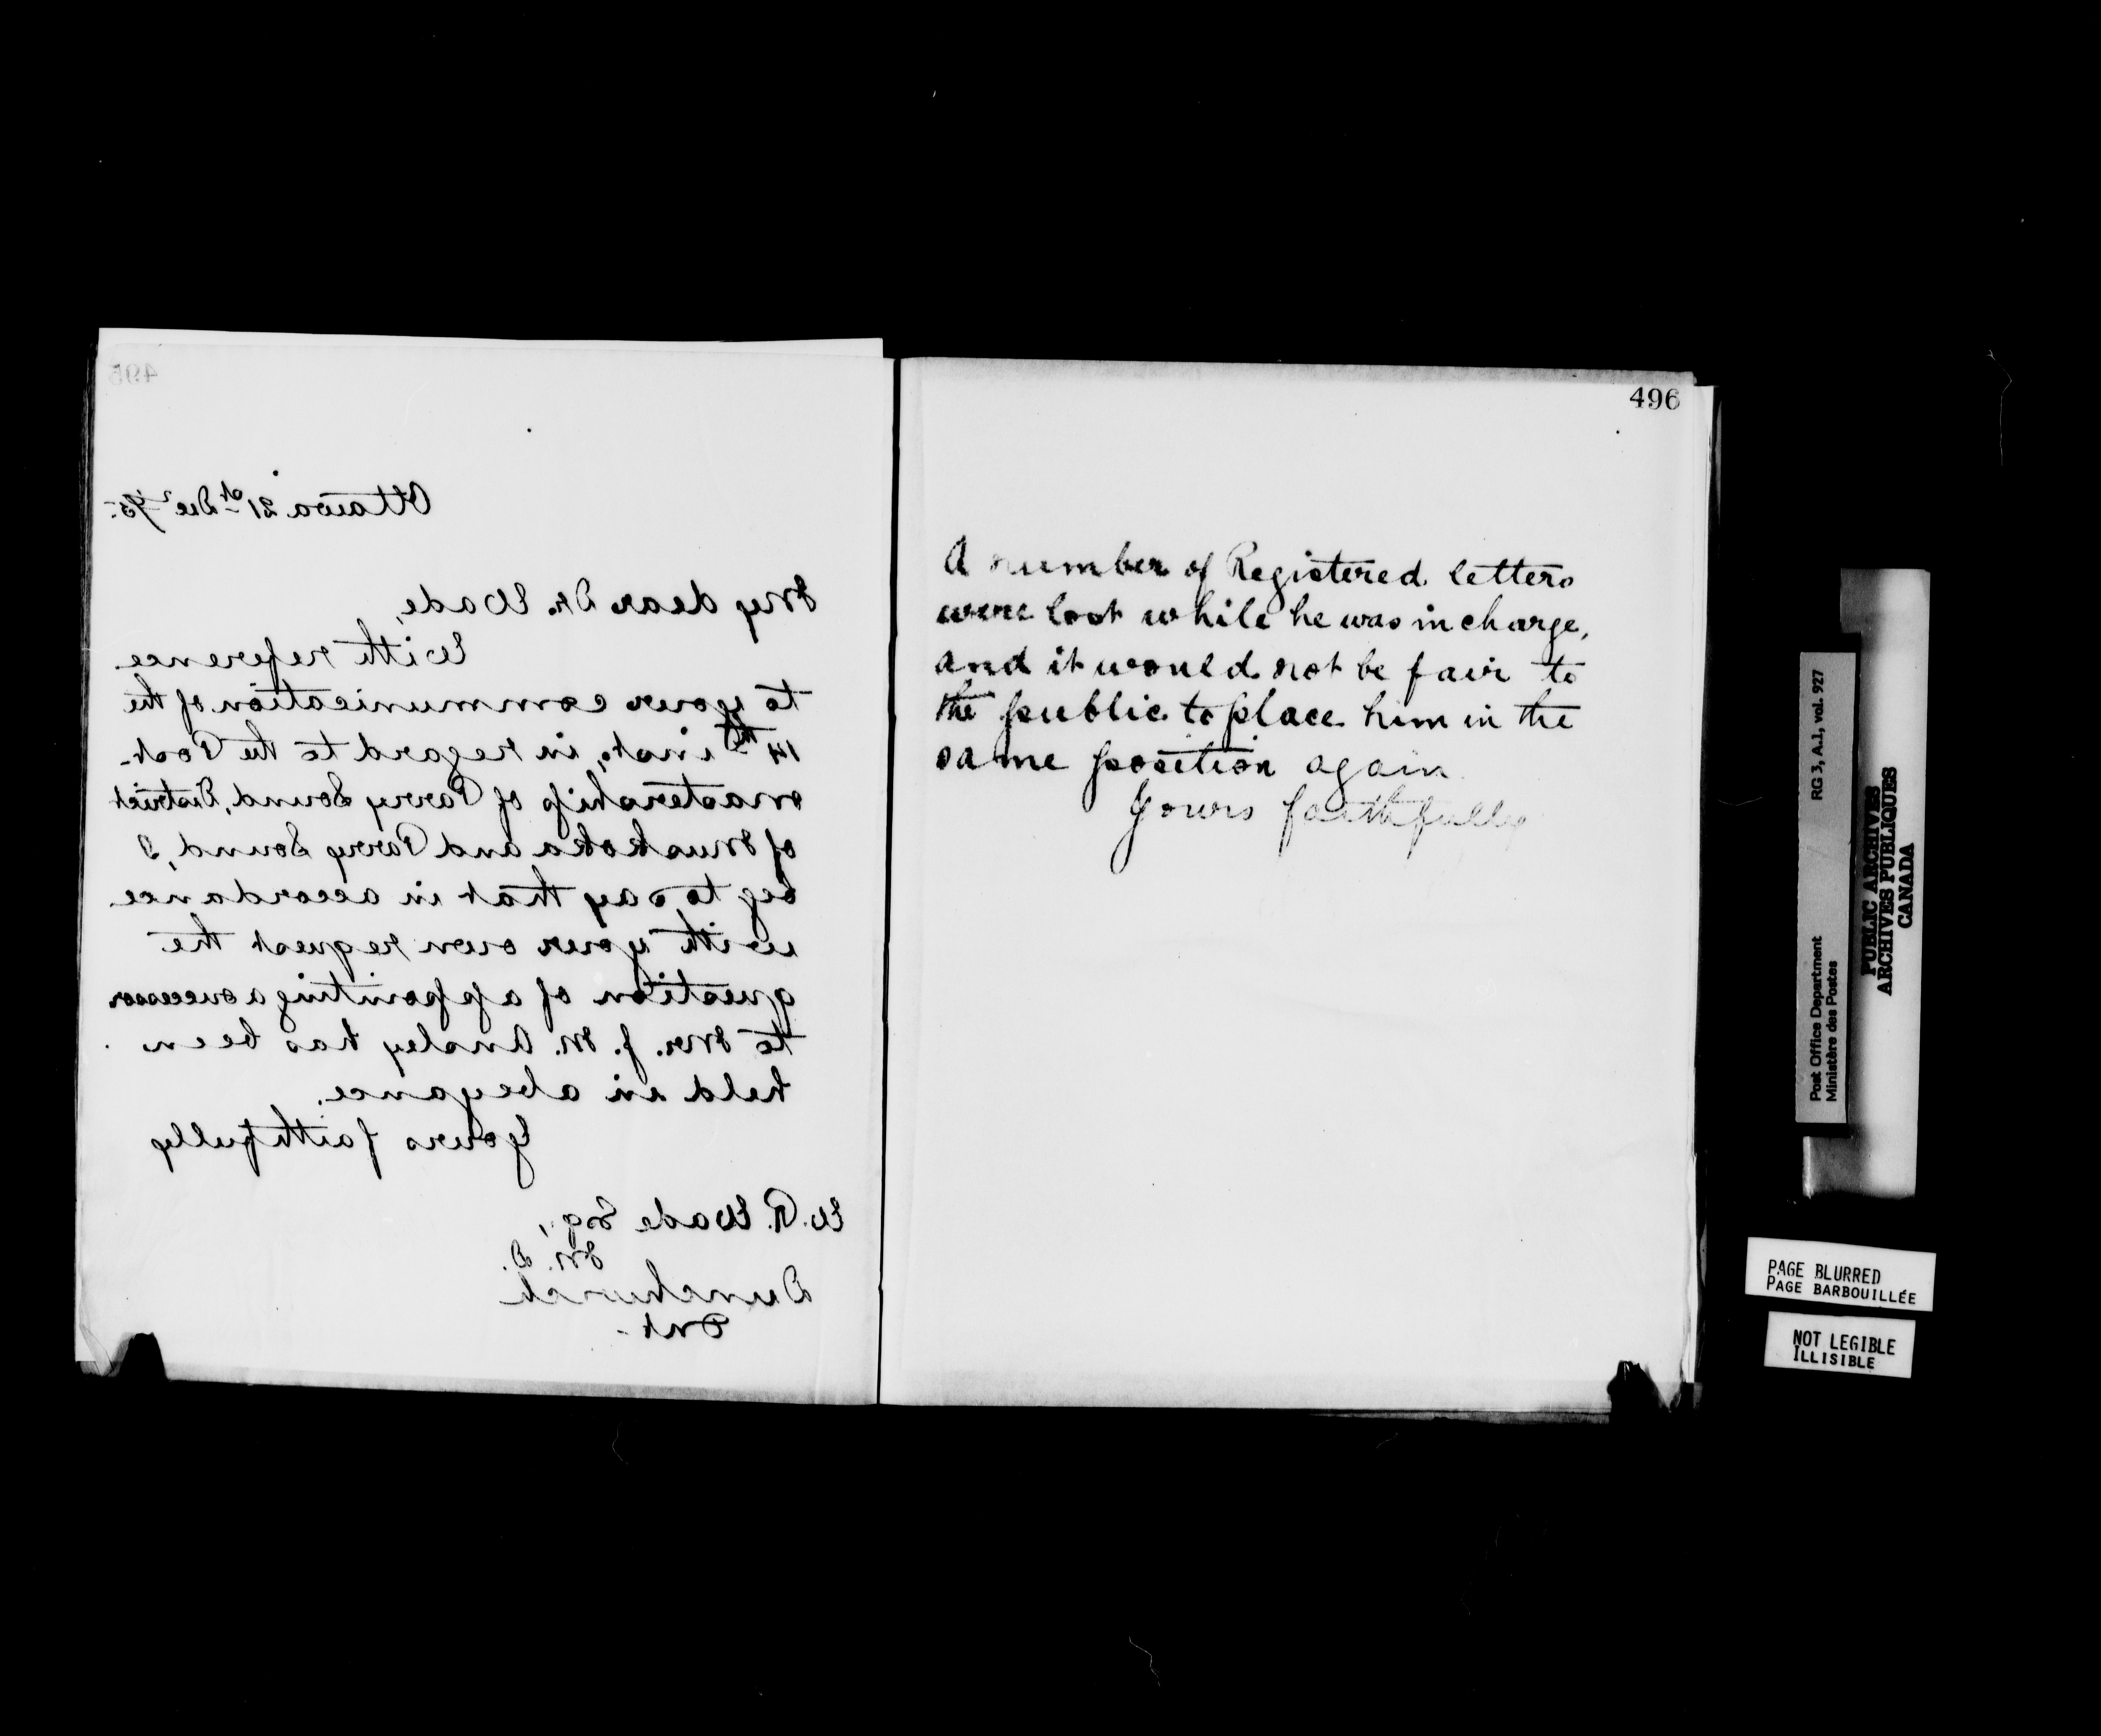 495
Ottawa 21st Decr /95.
My dear Dr. Wade,
With reference
to your communication of the
14th inst., in regard to the Post-
mastership of Parry Sound, District
of Muskoka and Parry Sound, I
beg to say that in accordance
with your own request the
question of appointing a successor
to Mr. J. M. Ansley has been
held in abeyance.
Yours faithfully
W. R. Wade Esq.,
M. D.
Dunchurch
Ont.
496
A number of Registered letters
were lost while he was in charge,
and it would not be fair to
the public to place him in the
same position again
Yours faithfully
RG 3, A.1, vol. 927
Post Office Department
Ministère des Postes
PUBLIC ARCHIVES
ARCHIVES PUBLIQUES
CANADA
PAGE BLURRED
PAGE BARBOUILLÉE
NOT LEGIBLE
ILLISIBLE